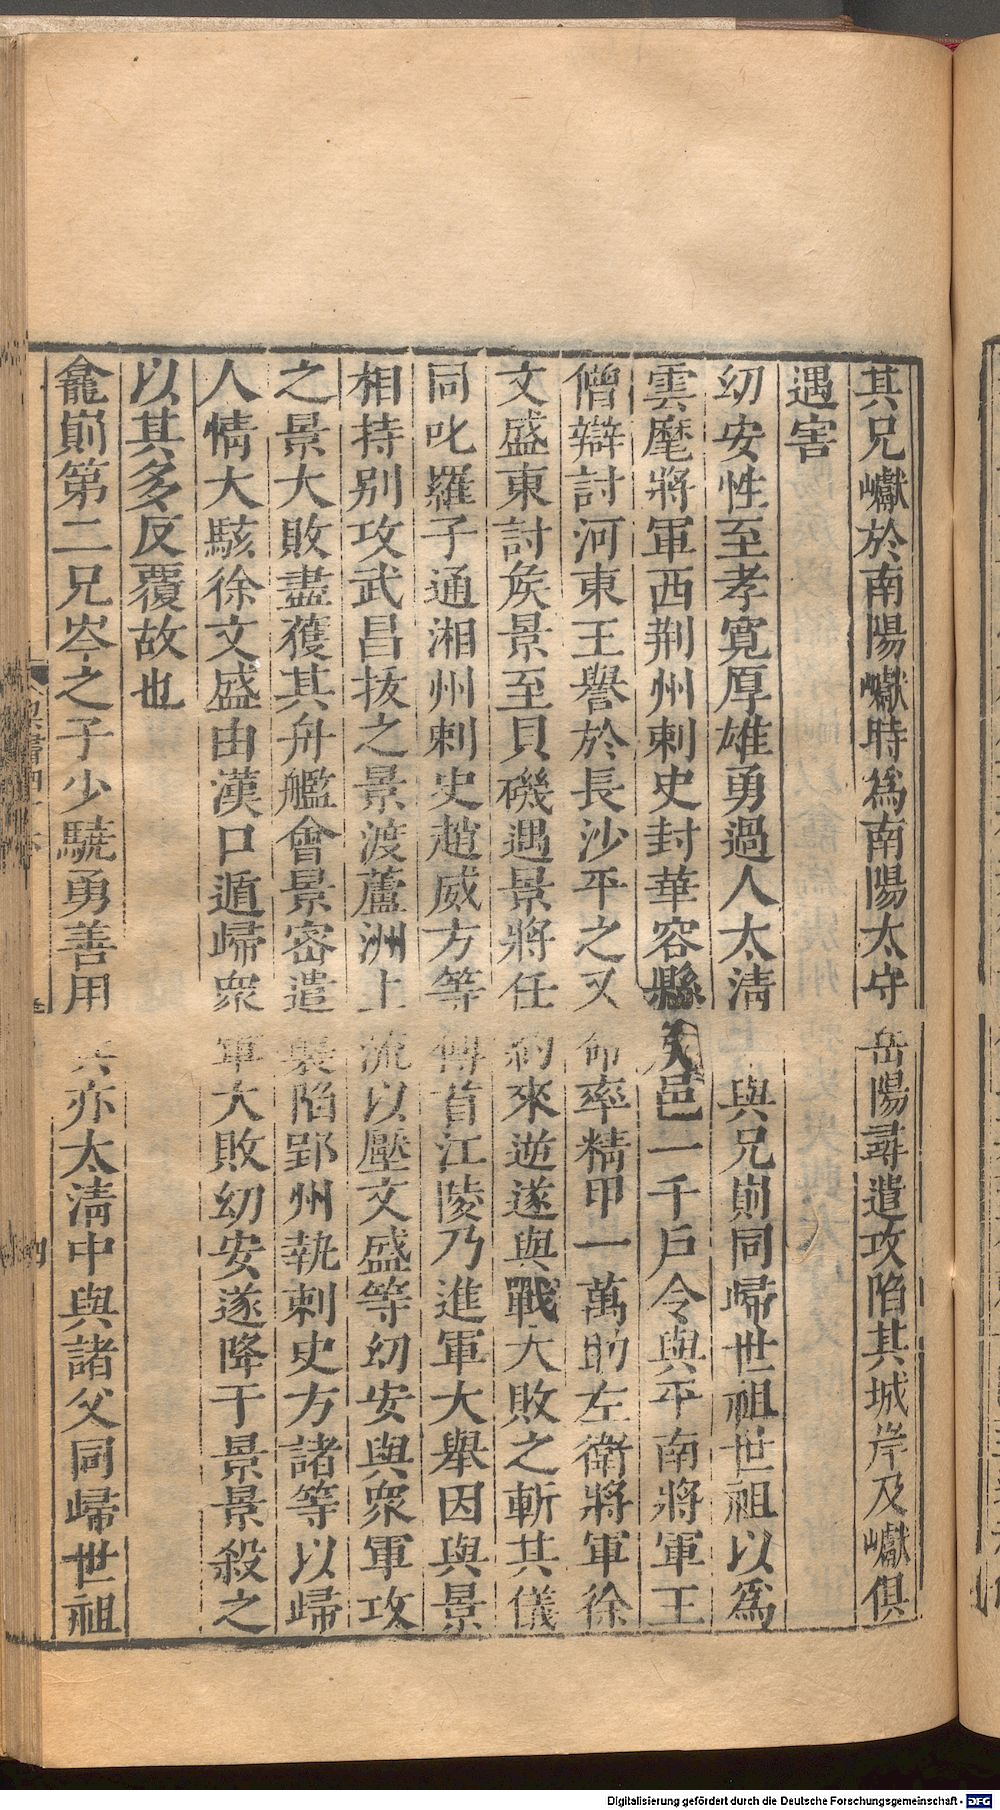 其兄巘於南陽巘時爲南陽太守岳陽尋遣攻陷其城岸及巘俱
遇害
幼安性至孝寛厚雄勇過人太淸與兄崱同歸世祖世祖以爲
雲麾將軍西荆州刺史封華容縣矦邑一千戸令與平南將軍王
僧辯討河東王譽於長沙平之又命率精甲一萬助左衛將軍徐
文盛東討矦景至貝磯遇景將任約來逆遂與戰大敗之斬其儀
同叱羅子通湘州刺史趙威方等傳首江陵乃進軍大舉因與景
相持别攻武昌抜之景渡蘆洲上流以壓文盛等幼安與衆軍攻
之景大敗盡獲其舟艦會景密遣襲陷郢州執刺史方諸等以歸
人情大駭徐文盛由漢口遁歸衆軍大敗幼安遂降于景景殺之
以其多反覆故也
龕崱第二兄岑之子少驍勇善用兵亦太淸中與諸父同歸世祖
Digitalisierung gefördert durch die Deutsche Forschungsgemeinschaft - DFG